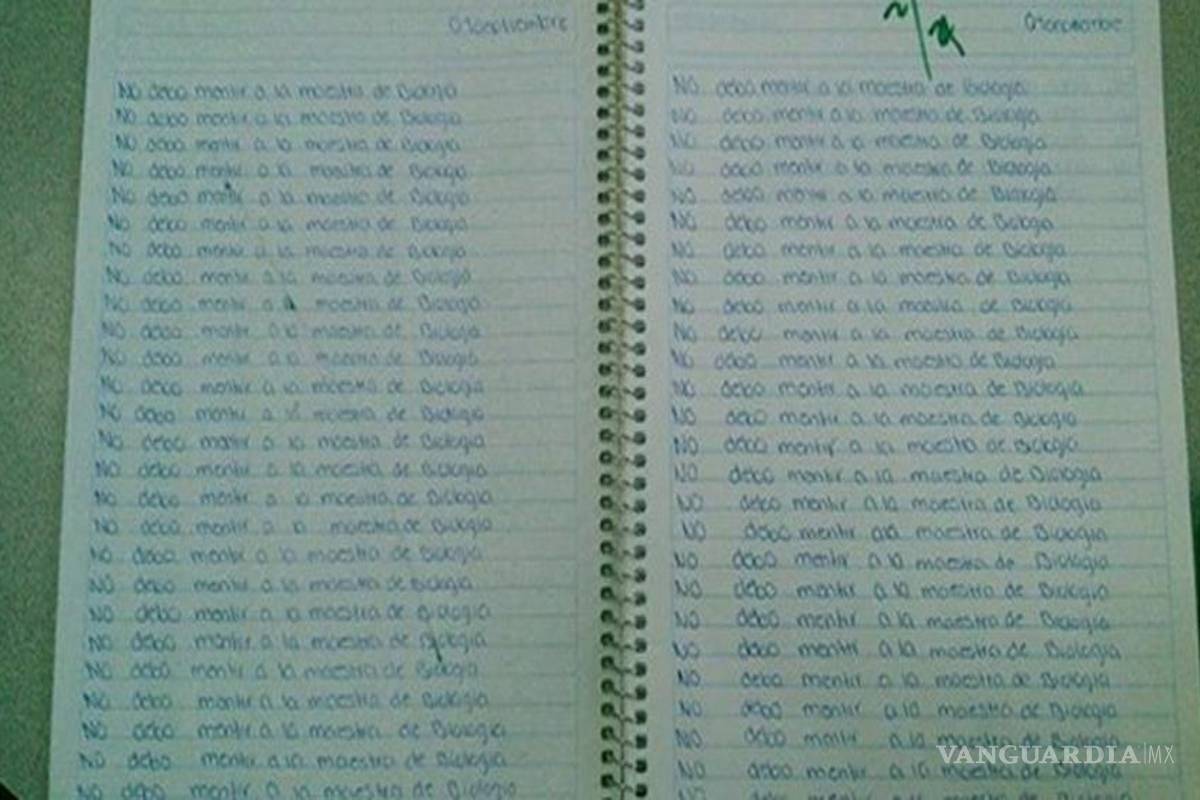 01septiembre
No debo mentir a la maestra de Biología
No debo mentir a la maestra de Biología
No debo mentir a la maestra de Biología
No debo mentir a la maestra de Biología
No debo mentir a la maestra de Biología
No debo mentir a la maestra de Biología
No debo mentir a la maestra de Biología
No debo mentir a la maestra de Biología
No debo mentir a la maestra de Biología
No debo mentir a la maestra de Biología
No debo mentir a la maestra de Biología
No debo mentir a la maestra de Biología
No debo mentir a la maestra de Biología
No debo mentir a la maestra de Biología
No debo mentir a la maestra de Biología
No debo mentir a la maestra de Biología
No debo mentir a la maestra de Biología
No debo mentir a la maestra de Biología
No debo mentir a la maestra de Biología
No debo mentir a la maestra de Biología
No debo mentir a la maestra de Biología
No debo mentir a la maestra de Biología
No debo mentir a la maestra de Biología
No debo mentir a la maestra de Biología
No debo mentir a la maestra de Biología
No debo mentir a la maestra de Biología
01septiembre
No debo mentir a la maestra de Biología
No debo mentir a la maestra de Biología
No debo mentir a la maestra de Biología
No debo mentir a la maestra de Biología
No debo mentir a la maestra de Biología
No debo mentir a la maestra de Biología
No debo mentir a la maestra de Biología
No debo mentir a la maestra de Biología
No debo mentir a la maestra de Biología
No debo mentir a la maestra de Biología
No debo mentir a la maestra de Biología
No debo mentir a la maestra de Biología
No debo mentir a la maestra de Biología
No debo mentir a la maestra de Biología
No debo mentir a la maestra de Biología
No debo mentir a la maestra de Biología
No debo mentir a la maestra de Biología
No debo mentir a la maestra de Biología
No debo mentir a la maestra de Biología
No debo mentir a la maestra de Biología
No debo mentir a la maestra de Biología
No debo mentir a la maestra de Biología
No debo mentir a la maestra de Biología
No debo mentir a la maestra de Biología
No debo mentir a la maestra de Biología
No debo mentir a la maestra de Biología
VANGUARDIA|MX